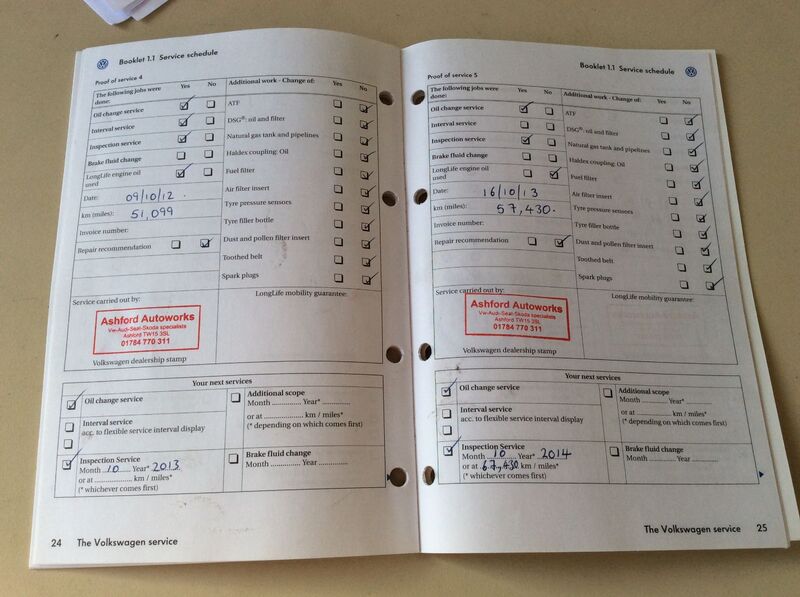 Booklet 1.1 Service schedule
Proof of service 4
The following jobs were done:
Yes No
Additional work - Change of:
Yes No
Oil change service
Interval service
Inspection service
Brake fluid change
LongLife engine oil used
Date: 09/10/12
km (miles): 51,099
Invoice number:
Repair recommendation
ATF
DSG®: oil and filter
Natural gas tank and pipelines
Haldex coupling: Oil
Fuel filter
Air filter insert
Tyre pressure sensors
Tyre filler bottle
Dust and pollen filter insert
Toothed belt
Spark plugs
Service carried out by:
Ashford Autoworks
Vw-Audi-Seat-Skoda specialists
Ashford TW15 3SL
01784 770 311
Volkswagen dealership stamp
LongLife mobility guarantee:
Your next services
Oil change service
Interval service
acc. to flexible service interval display
Inspection Service
Month 10 Year* 2013
or at .................. km / miles*
(* whichever comes first)
Additional scope
Month ............. Year* ...........
or at .................. km / miles*
(* depending on which comes first)
Brake fluid change
Month ............. Year ...........
24 The Volkswagen service
Booklet 1.1 Service schedule
Proof of service 5
The following jobs were done:
Yes No
Additional work - Change of:
Yes No
Oil change service
Interval service
Inspection service
Brake fluid change
LongLife engine oil used
Date: 16/10/13
km (miles): 57,430.
Invoice number:
Repair recommendation
ATF
DSG®: oil and filter
Natural gas tank and pipelines
Haldex coupling: Oil
Fuel filter
Air filter insert
Tyre pressure sensors
Tyre filler bottle
Dust and pollen filter insert
Toothed belt
Spark plugs
Service carried out by:
Ashford Autoworks
Vw-Audi-Seat-Skoda specialists
Ashford TW15 3SL
01784 770 311
Volkswagen dealership stamp
LongLife mobility guarantee:
Your next services
Oil change service
Interval service
acc. to flexible service interval display
Inspection Service
Month 10 Year* 2014
or at 67,430 km / miles*
(* whichever comes first)
Additional scope
Month ............. Year* ...........
or at .................. km / miles*
(* depending on which comes first)
Brake fluid change
Month ............. Year ...........
The Volkswagen service 25